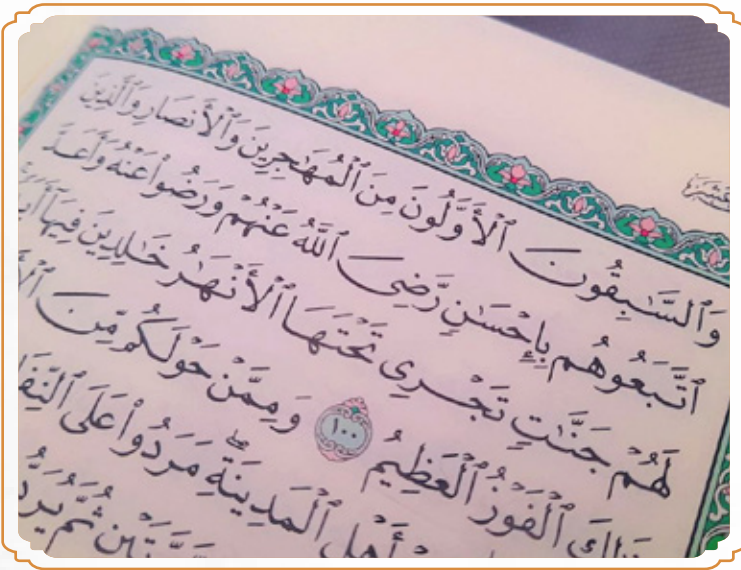 وَٱلسَّٰبِقُونَ ٱلْأَوَّلُونَ مِنَ ٱلْمُهَٰجِرِينَ وَٱلْأَنصَارِ وَٱلَّذِينَ
ٱتَّبَعُوهُم بِإِحْسَٰنٍ رَّضِىَ ٱللَّهُ عَنْهُمْ وَرَضُوا۟ عَنْهُ وَأَعَدَّ
لَهُمْ جَنَّٰتٍ تَجْرِى تَحْتَهَا ٱلْأَنْهَٰرُ خَٰلِدِينَ فِيهَآ
ذَٰلِكَ ٱلْفَوْزُ ٱلْعَظِيمُ ١٠٠ وَمِمَّنْ حَوْلَكُم مِّنَ
أَهْلِ ٱلْمَدِينَةِ مَرَدُوا۟ عَلَى
ثُمَّ